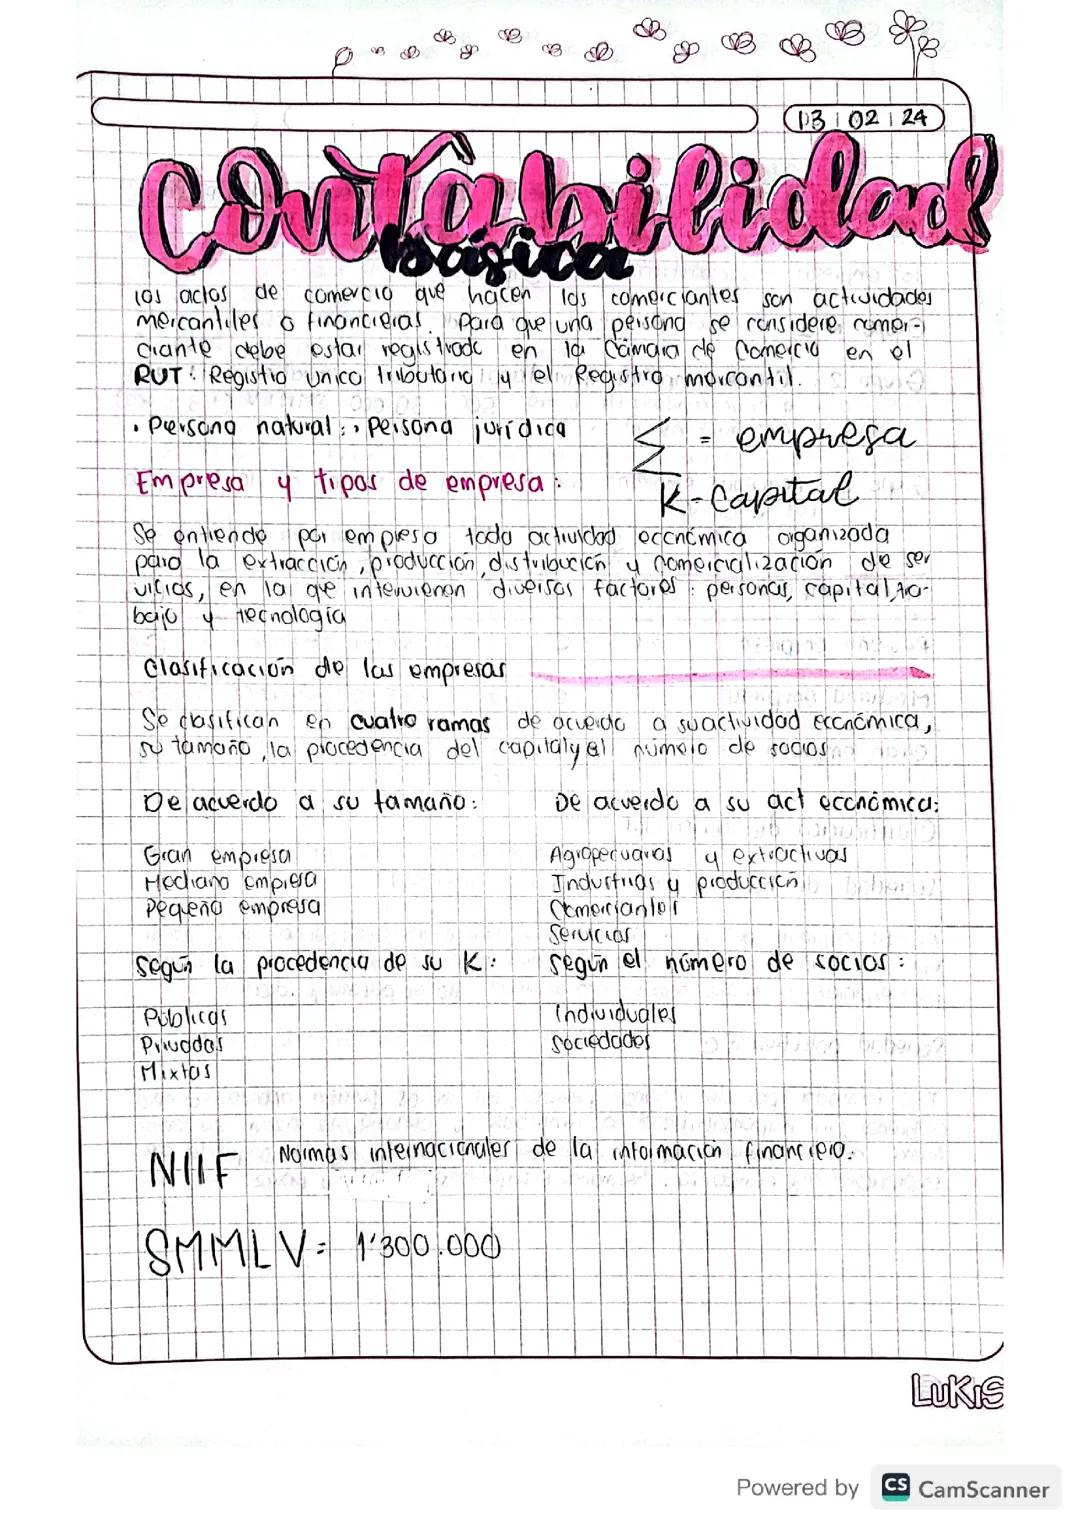 13 02 24
Contabilidad
básica
los actos de comercio que hacen los comerciantes son actividades
mercantiles o financieras. Para que una persona se considere comer-
ciante debe estar registrado en la Cámara de Comercio en el
RUT: Registro unico tributario y el Registro mercantil.
• Persona natural: • Persona jurídica
Σ = empresa
K - Capital
Empresa y tipos de empresa:
Se entiende por empresa toda actividad económica organizada
para la extracción, producción, distribución y comercialización de ser
vicios, en la que intervienen diversos factores: personas, capital, tra-
bajo y tecnología
Clasificación de las empresas
Se clasifican en cuatro ramas de acuerdo a su actividad económica,
su tamaño, la procedencia del capital y el número de socios
De acuerdo a su tamaño:
Gran empresa
Mediana empresa
Pequeña empresa
De acuerdo a su act económica:
Agropecuarias y extractivas
Industrias y producción
Comerciantes
Servicios
Según la procedencia de su K:
Públicas
Privadas
Mixtas
Según el número de socios:
Individuales
Sociedades
NIIF Normas internacionales de la información financiera.
SMMLV = 1'300.000
LUKIS
Powered by CS CamScanner